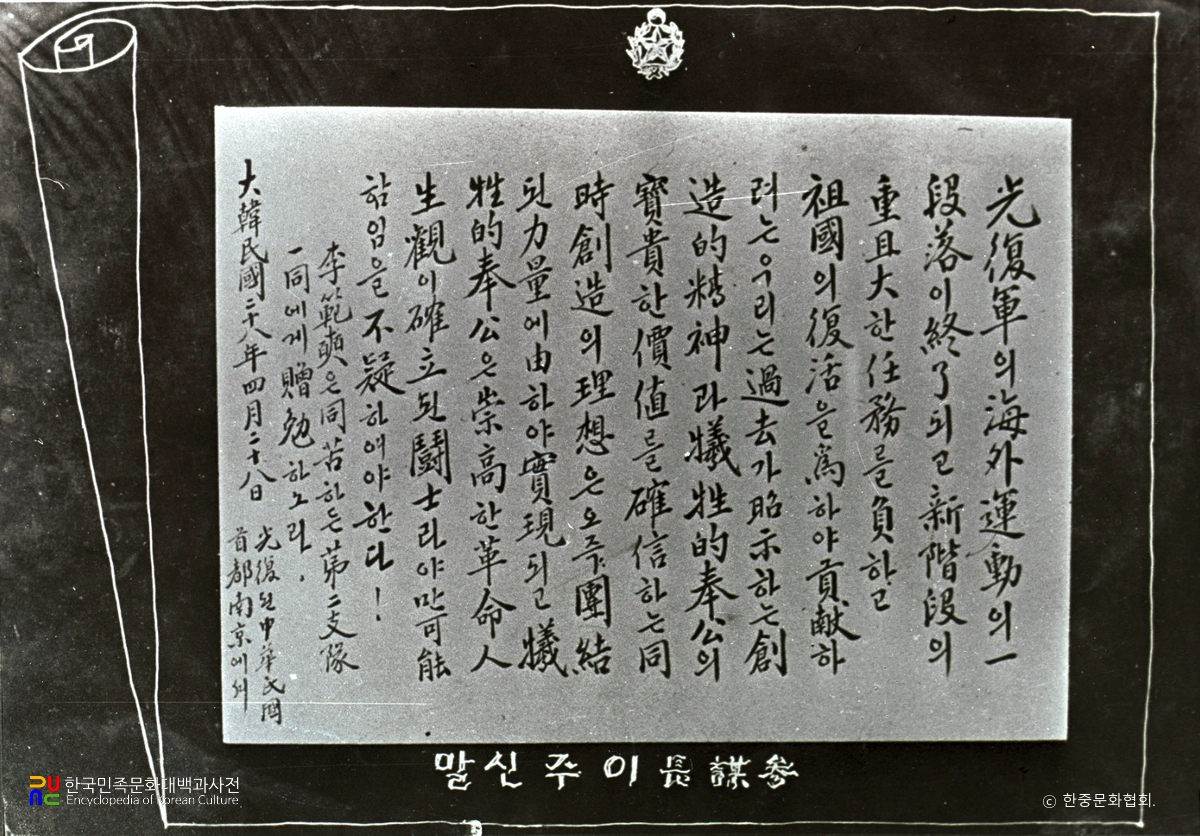 光復軍의海外運動의一
段落이終了되고新階段의
重且大한任務를負하고
祖國의復活을爲하야貢献하
려는우리는過去가昭示하는創
造的精神과犧牲的奉公의
寶貴한價値를確信하는同
時創造의理想은오즉團結
된力量에由하야實現되고犧
牲的奉公은崇高한革命人
生觀이確立된鬪士라야만可能
함임을不疑하여야한다!
李範奭은同苦하든第二支隊
一同에게贈勉하노라.
大韓民國二十八年四月二十八日
光復된中華民國
首都南京에서
參謀長이주신말
한국민족문화대백과사전
Encyclopedia of Korean Culture
ⓒ 한중문화협회.